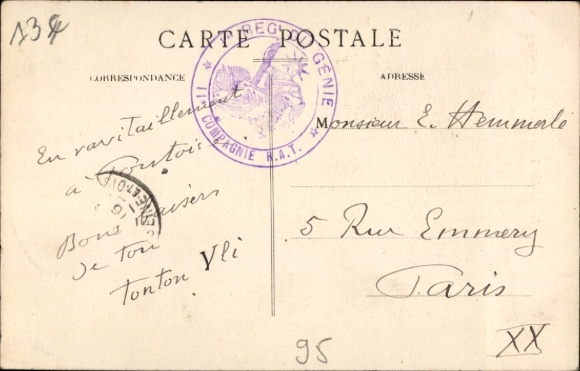 134
CARTE POSTALE
CORRESPONDANCE
ADRESSE
REG. DU GÉNIE
11 COMPAGNIE R.A.T.
En ravitaillement
a Pontoise
Bons baisers
de ton
tonton Yli
SEINE-ET-OI
Monsieur E. Hemmerlé
5 Rue Emmery
Paris
95
XX